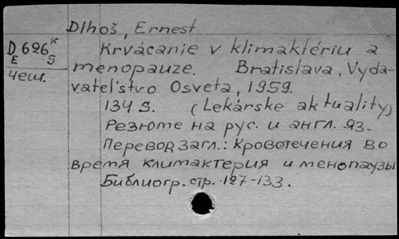 Dlhoš, Ernest
D626 K
E S
Krvácanie v klimaktériu a
menopauze. Bratislava, Vyda-
Чеш.
vateľstvo Osveta, 1959.
134 S. (Lekárske aktuality)
Резюме на рус. и англ. яз.
Перевод загл.: Кровотечения во
время климактерия и менопаузы
Библиогр. стр. 127-133.